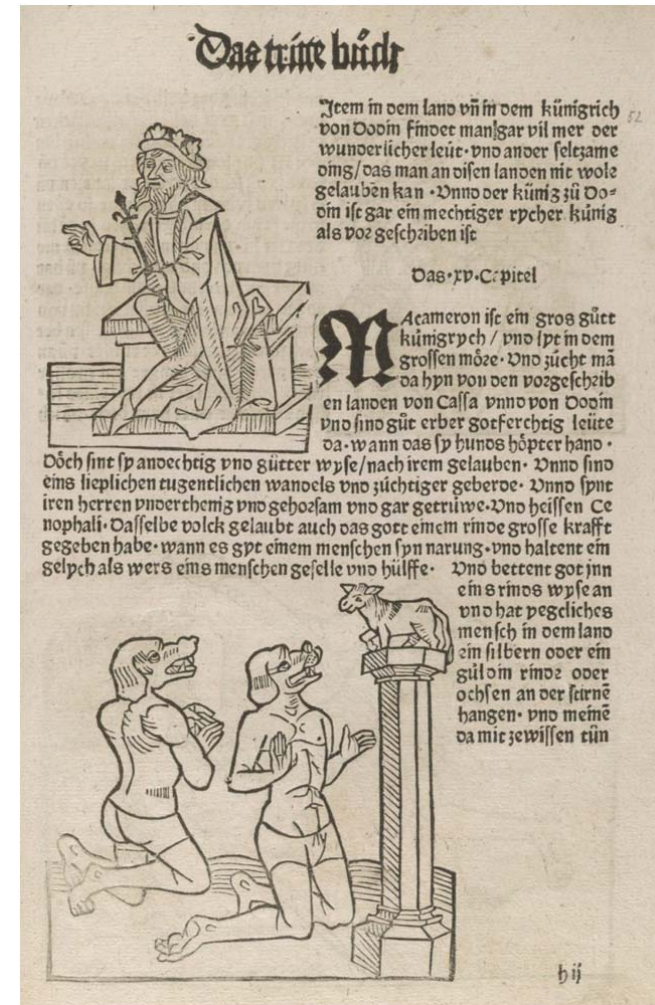 Das tritte bůch
Item in dem land vñ in dem künigrich
von Dodin findet man gar vil mer der
wunderlicher leüt · vnd ander seltzame
ding / das man an disen landen nit wole
gelauben kan · Vnnd der künig zů Do⸗
din ist gar ein mechtiger rycher künig
als vor geschriben ist
52
Das · xv · Capitel
MAcameron ist ein gros gůtt
künigrych / vnd lyt in dem
grossen möre · Vnd zücht mā
da hyn von den vorgeschrib
en landen von Cassa vnnd von Dodin
vnd sind gůt erber gotferchtig leüte
da · wann das sy hunds höpter hand ·
Döch sint sy andechtig vnd gůtter wyse / nach irem gelauben · Vnnd sind
eins lieplichen tugentlichen wandels vnd züchtiger geberde · Vnnd synt
iren herren vnderthenig vnd gehorsam vnd gar getrüwe · Vnd heissen Ce
nophali · Dasselbe volck gelaubt auch das gott einem rinde grosse krafft
gegeben habe · wann es gyt einem menschen syn narung · vnd haltent ein
gelych als wers eins menschen geselle vnd hülffe · Vnd bettent got jnn
eins rinds wyse an
vnd hat yegcliches
mensch in dem land
ein silbern oder ein
güldin rindr oder
ochsen an der stirnē
hangen · vnd meinē
da mit zewissen tůn
h ij